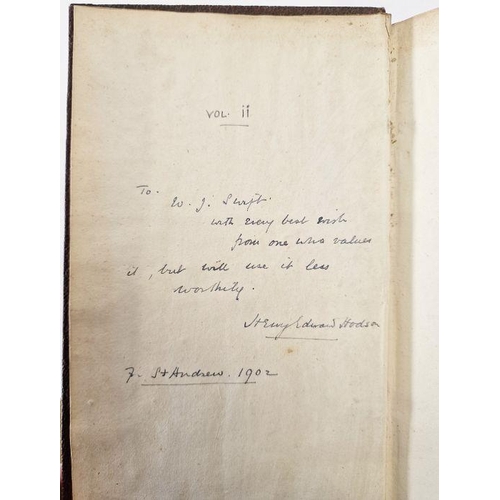 VOL. ii
To.
W. J. Swift.
with every best wish
from one who values
it, but will use it less
worthily.
Henry Edward Hodson
F. St Andrew. 1902